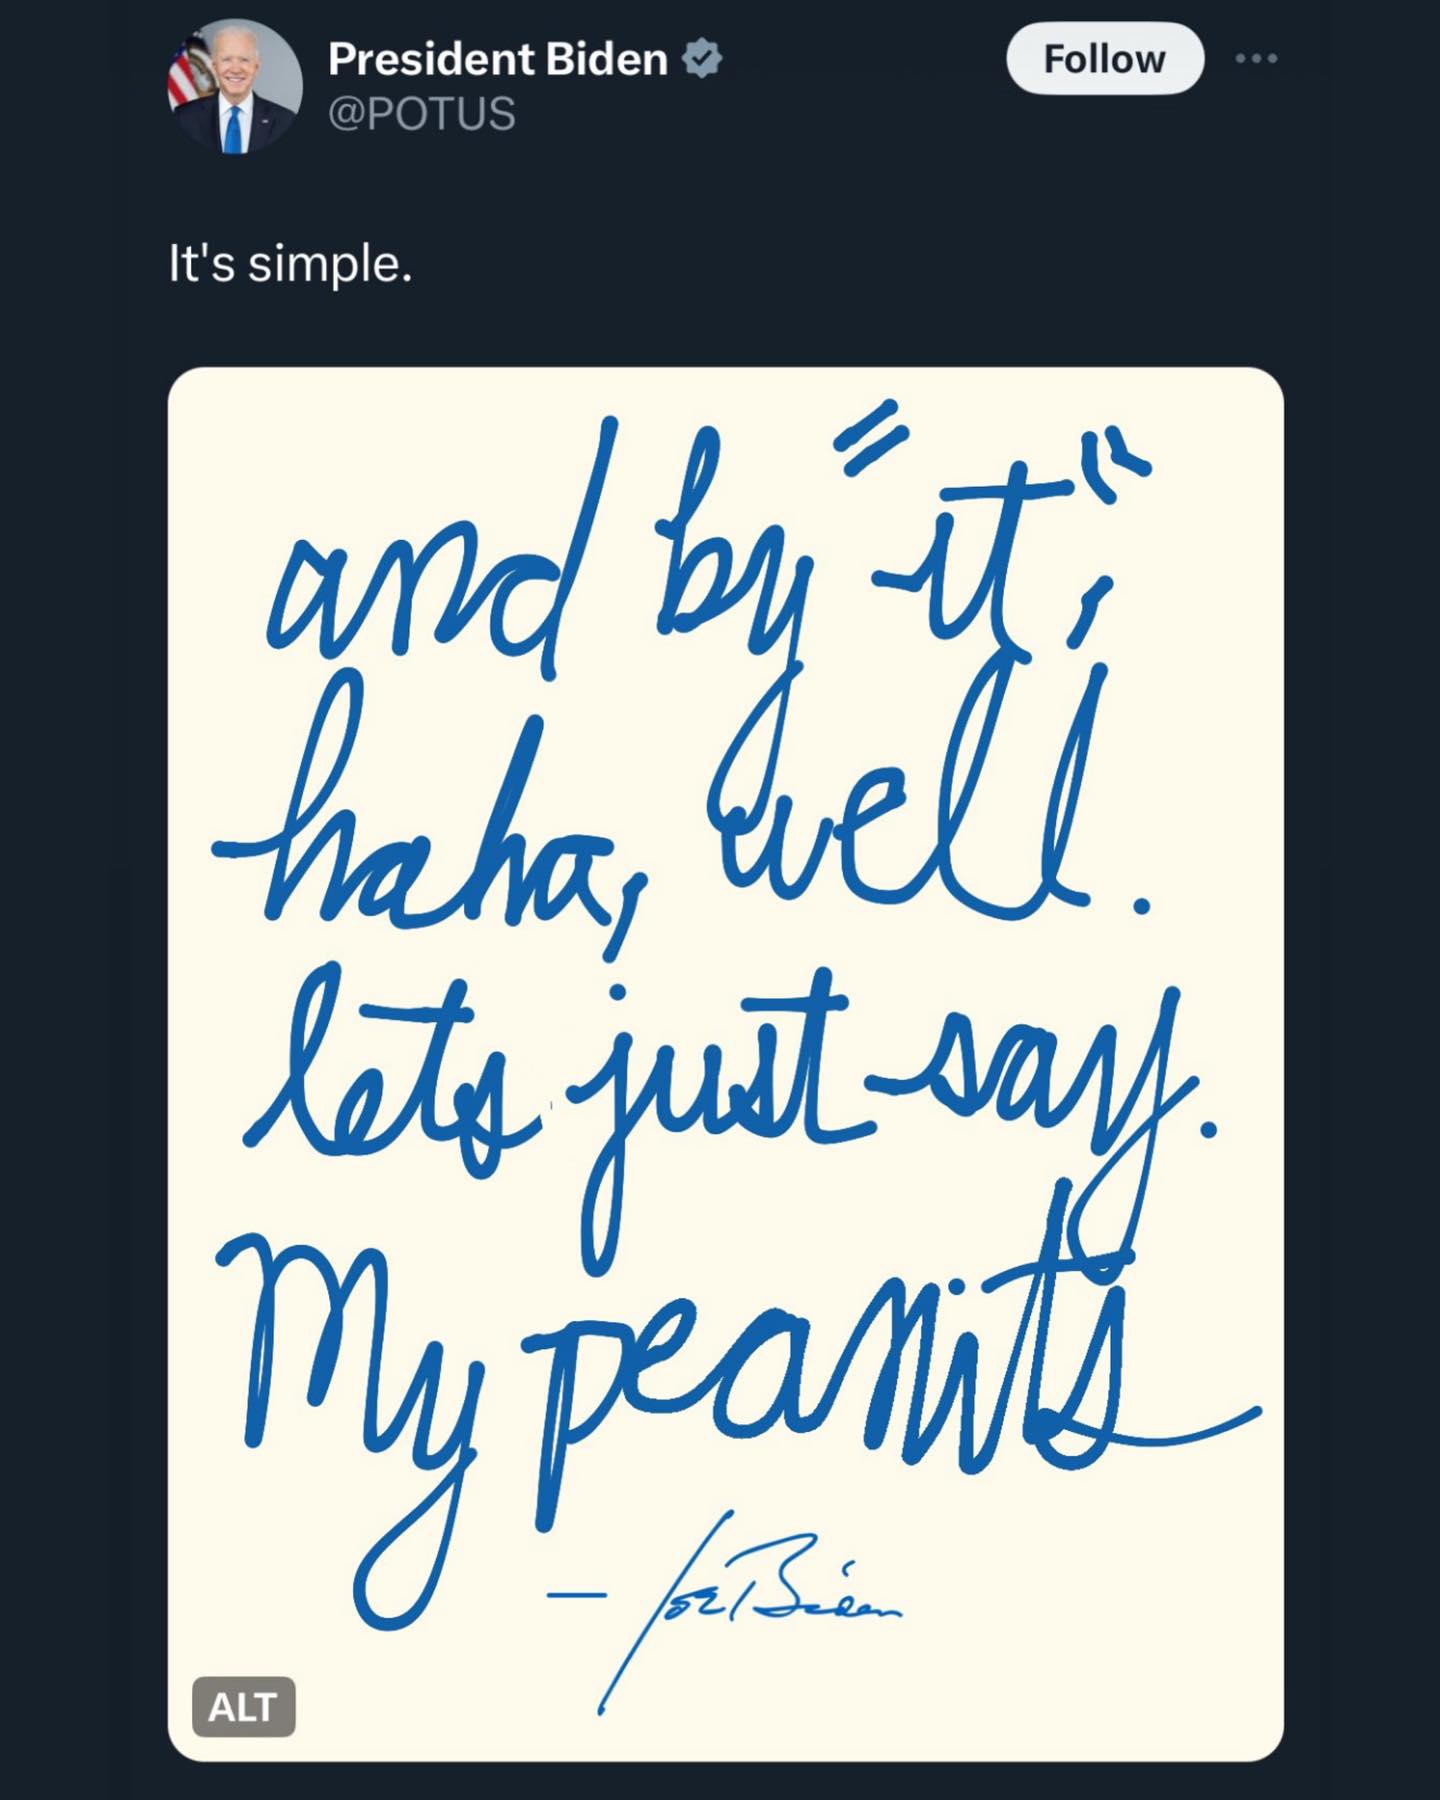 President Biden
Follow
@POTUS
It's simple.
and by "it",
haha, well.
lets just say.
My peanits
— Joe Biden
ALT